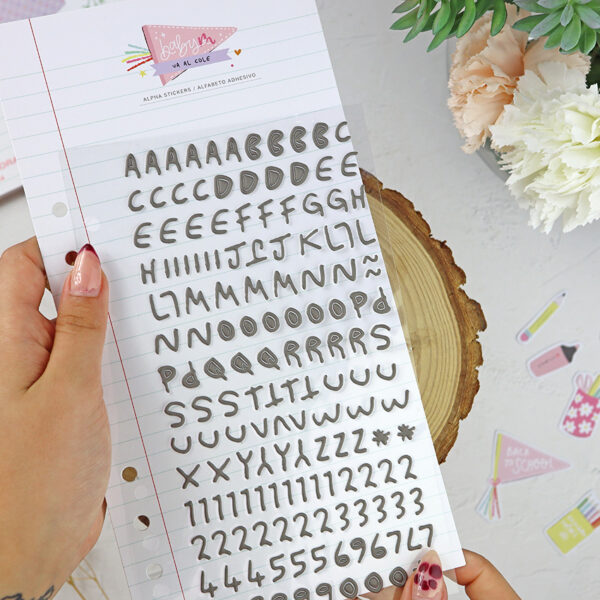 babym
VA AL COLE
ALPHA STICKERS / ALFABETO ADHESIVO
AAAAABBBBC
CCCCDDDDEE
EEEEFFFGGH
HIIIIIIJJJKLLL
LLMMMMNN~
NNOOOOOOPP
PPQQQRRRRS
SSSSTTTTUUU
UUUVVVWWWW
XXYYYYZZZ**
111111111112222
22222223333
4445556967L7
BACK
TO SCHOOL